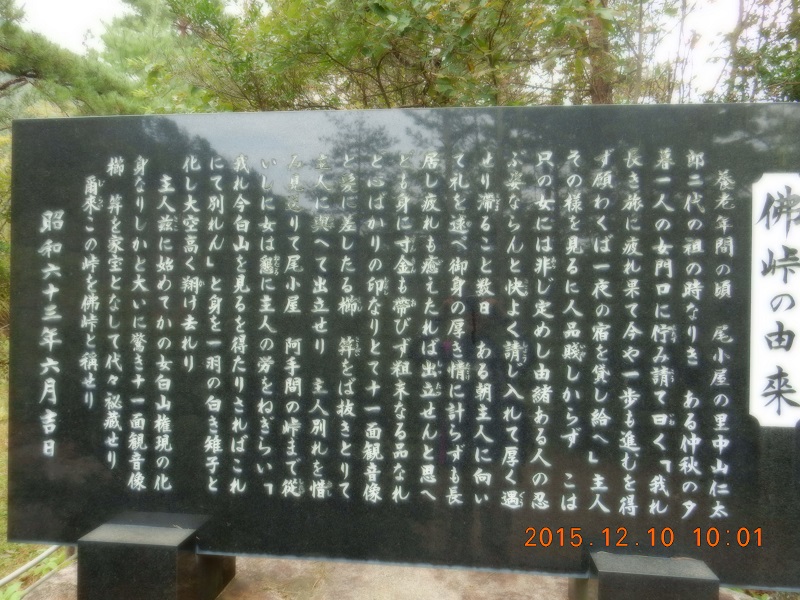 佛峠の由来
養老年間の頃　尾小屋の里中山仁太
郎二代の祖の時なりき　ある仲秋の夕
暮一人の女門口に佇み請て曰く「我れ
長き旅に疲れ果て今や一歩も進むを得
ず願わくば一夜の宿を貸し給へ」主人
その様を見るに人品賤しからず　こは
只の女には非じ定めし由緒ある人の忍
ぶ姿ならんと快よく請じ入れて厚く遇
せり滞ること数日　ある朝主人に向い
て礼を述べ御身の厚き情に計らずも長
居し疲れも癒えたれば出立せんと思へ
ども身に寸金も帯びず粗末なる品なれ
ど心ばかりの印なりとて十一面観音像
と髪に差したる櫛　笄をば抜きとりて
主人に與へて出立せり　主人別れを惜
みりて尾小屋　阿手間の峠まで従
いしに女は懇に主人の労をねぎらい「
我れ今白山を見るを得たりさればこれ
にて別れん」と身を一羽の白き雉子と
化し大空高く翔け去れり
主人茲に始めてかの女白山権現の化
身なりしかと大いに驚き十一面観音像
櫛　笄を家宝となして代々秘蔵せり
爾来この峠を佛峠と称せり
昭和六十三年六月吉日
2015.12.10 10:01